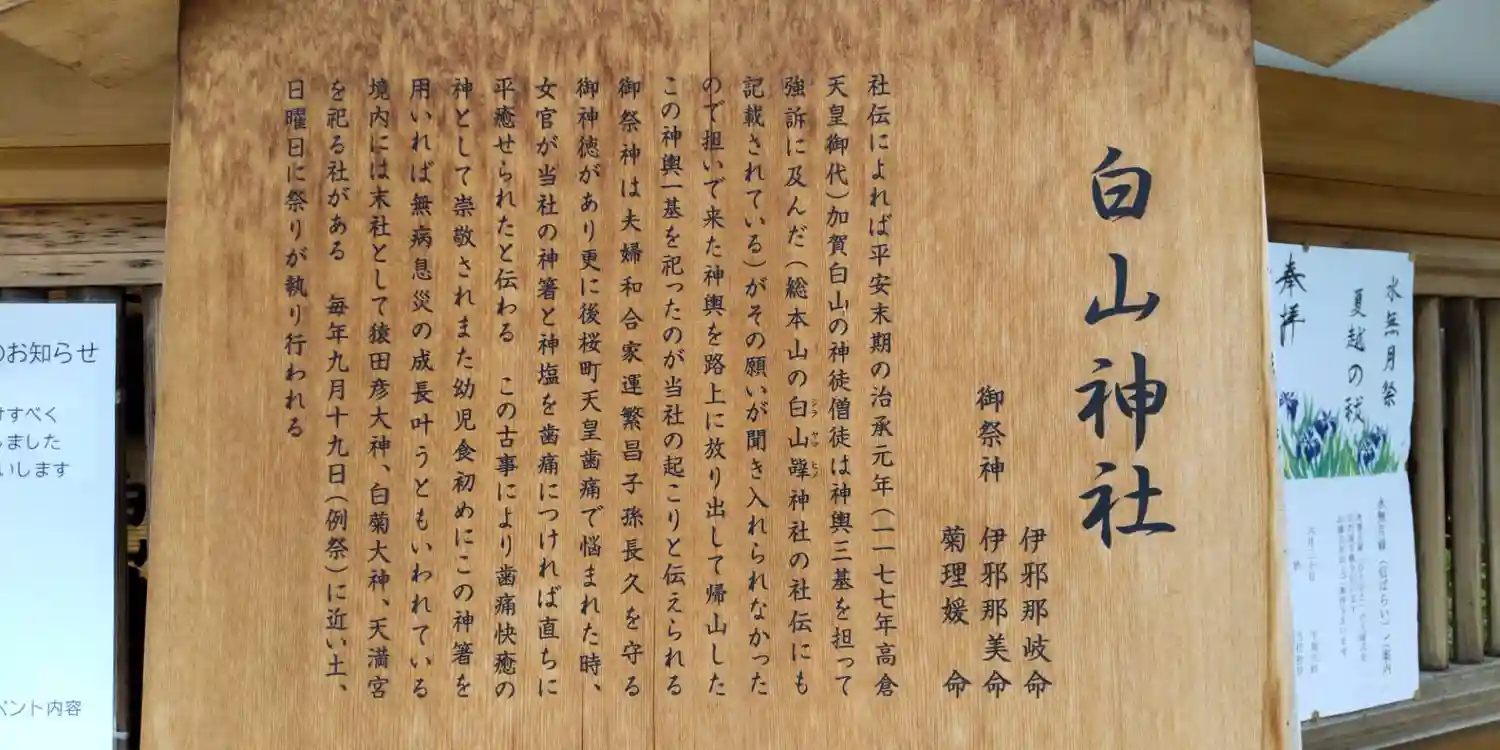 白山神社
御祭神
伊邪那岐命
伊邪那美命
菊理媛 命
社伝によれば平安末期の治承元年（一一七七年高倉
天皇御代）加賀白山の神徒僧徒は神輿三基を担って
強訴に及んだ（総本山の白山㟁神社の社伝にも
シラ ヤマ ヒメ
記載されている）がその願いが聞き入れられなかった
ので担いで来た神輿を路上に放り出して帰山した
この神輿一基を祀ったのが当社の起こりと伝えられる
御祭神は夫婦和合家運繁昌子孫長久を守る
御神徳があり更に後桜町天皇歯痛で悩まれた時、
女官が当社の神箸と神塩を歯痛につければ直ちに
平癒せられたと伝わる この古事により歯痛快癒の
神として崇敬されまた幼児食初めにこの神箸を
用いれば無病息災の成長叶うともいわれている
境内には末社として猿田彦大神、白菊大神、天満宮
を祀る社がある 毎年九月十九日（例祭）に近い土、
日曜日に祭りが執り行われる
水無月祭
夏越の祓
奉拝
のお知らせ
けすべく
しました
いします
ベント内容